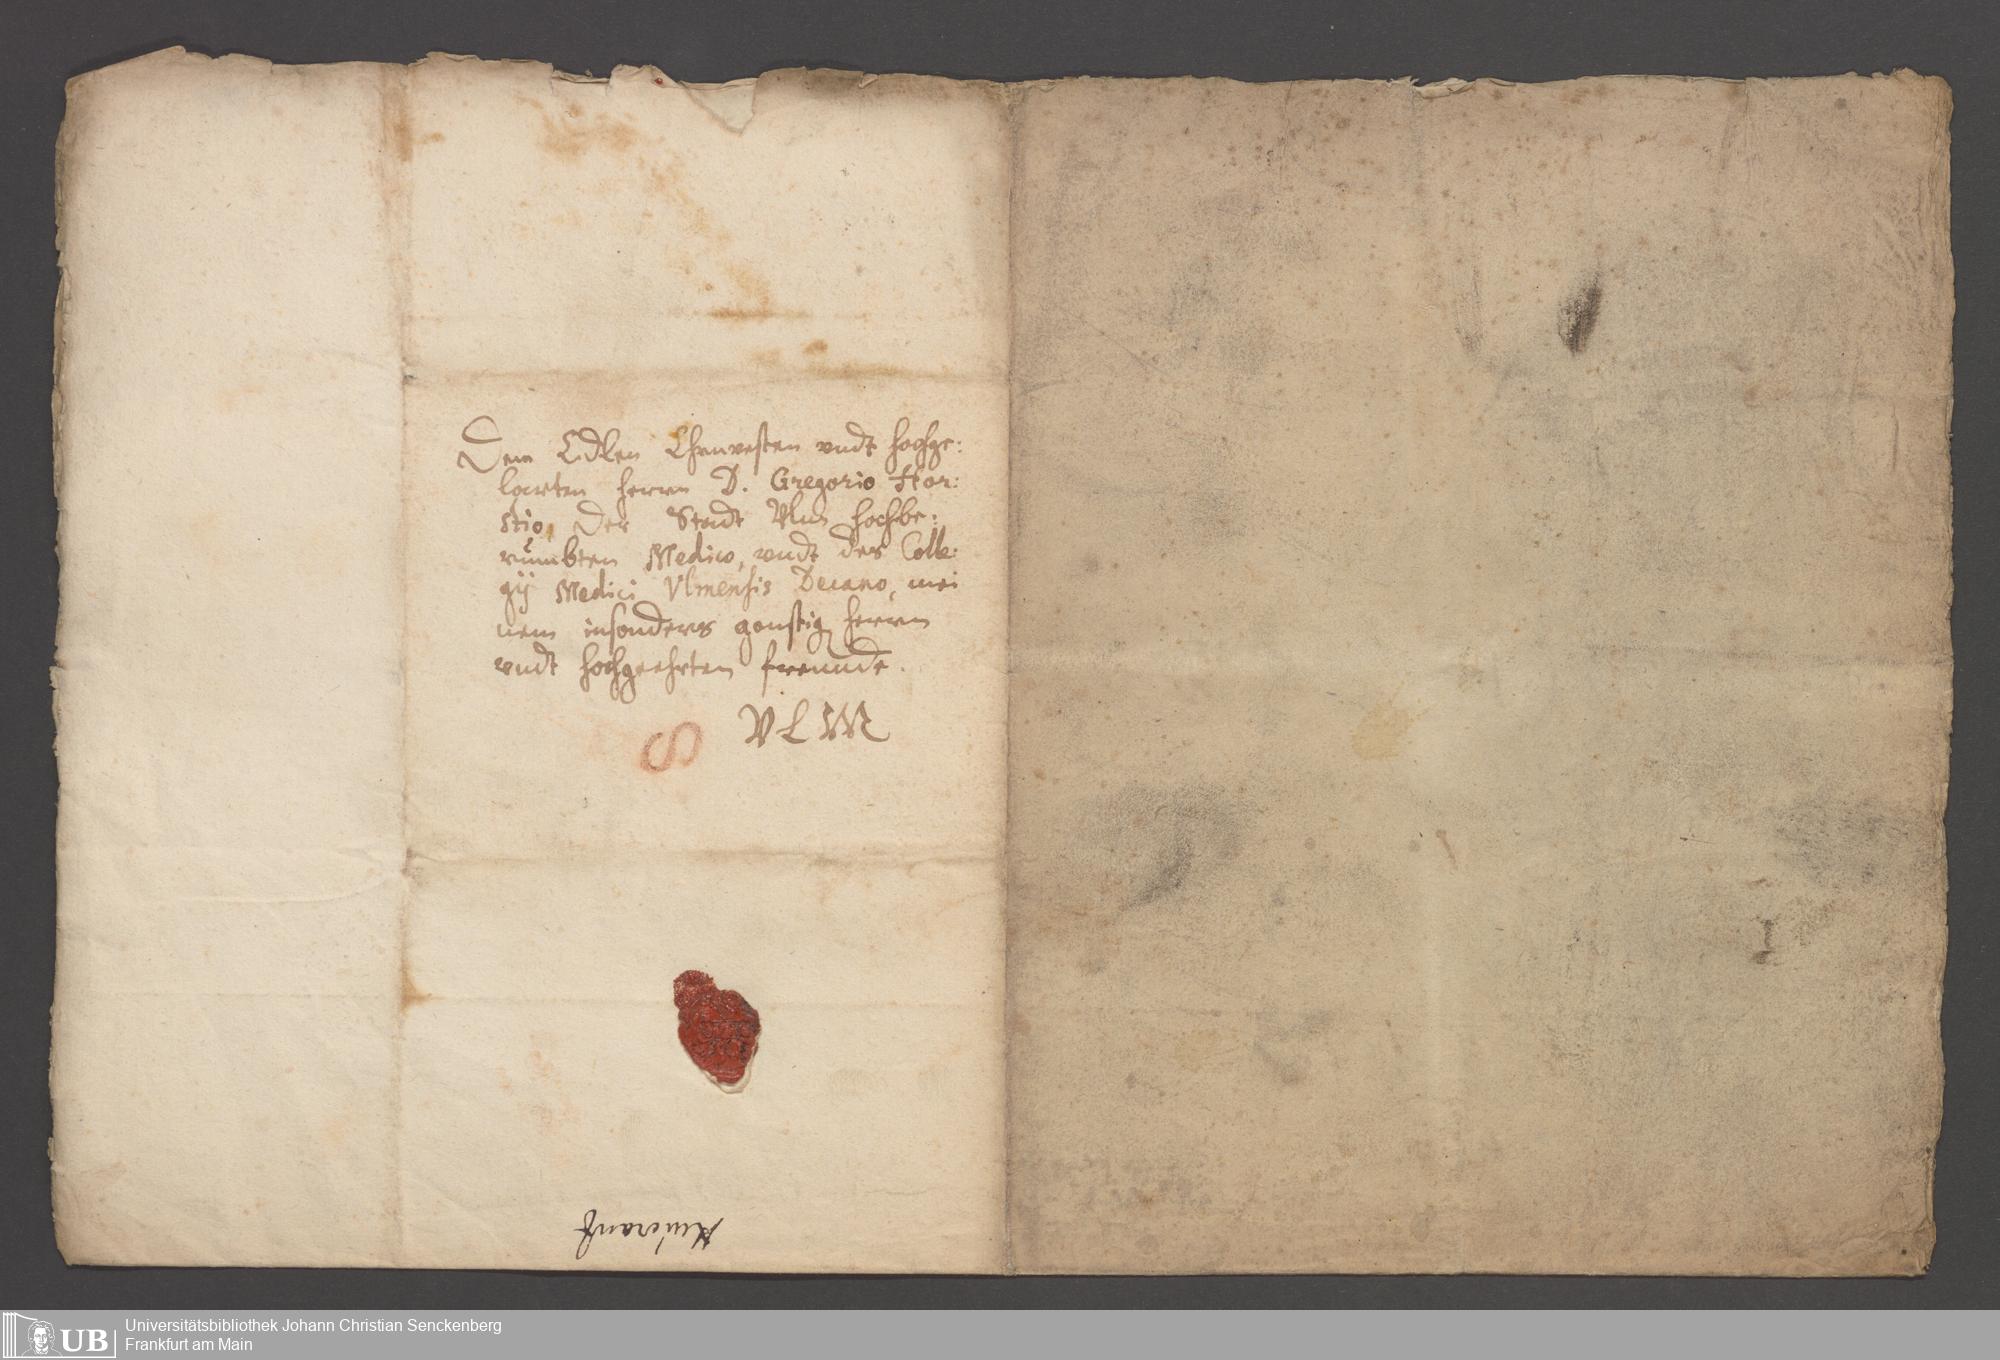 Dem Edlen Ehrnvesten vndt hochge:
larten herrn D. Gregorio Hor:
stio, der Stadt Vlm hochbe:
rümbten Medico, vndt des Colle:
gÿ Medici Vlmensis Decano, mei
nem insonders gonstig herrn
vndt hochgeehrten freunde.
VLM
UB
Universitätsbibliothek Johann Christian Senckenberg
Frankfurt am Main